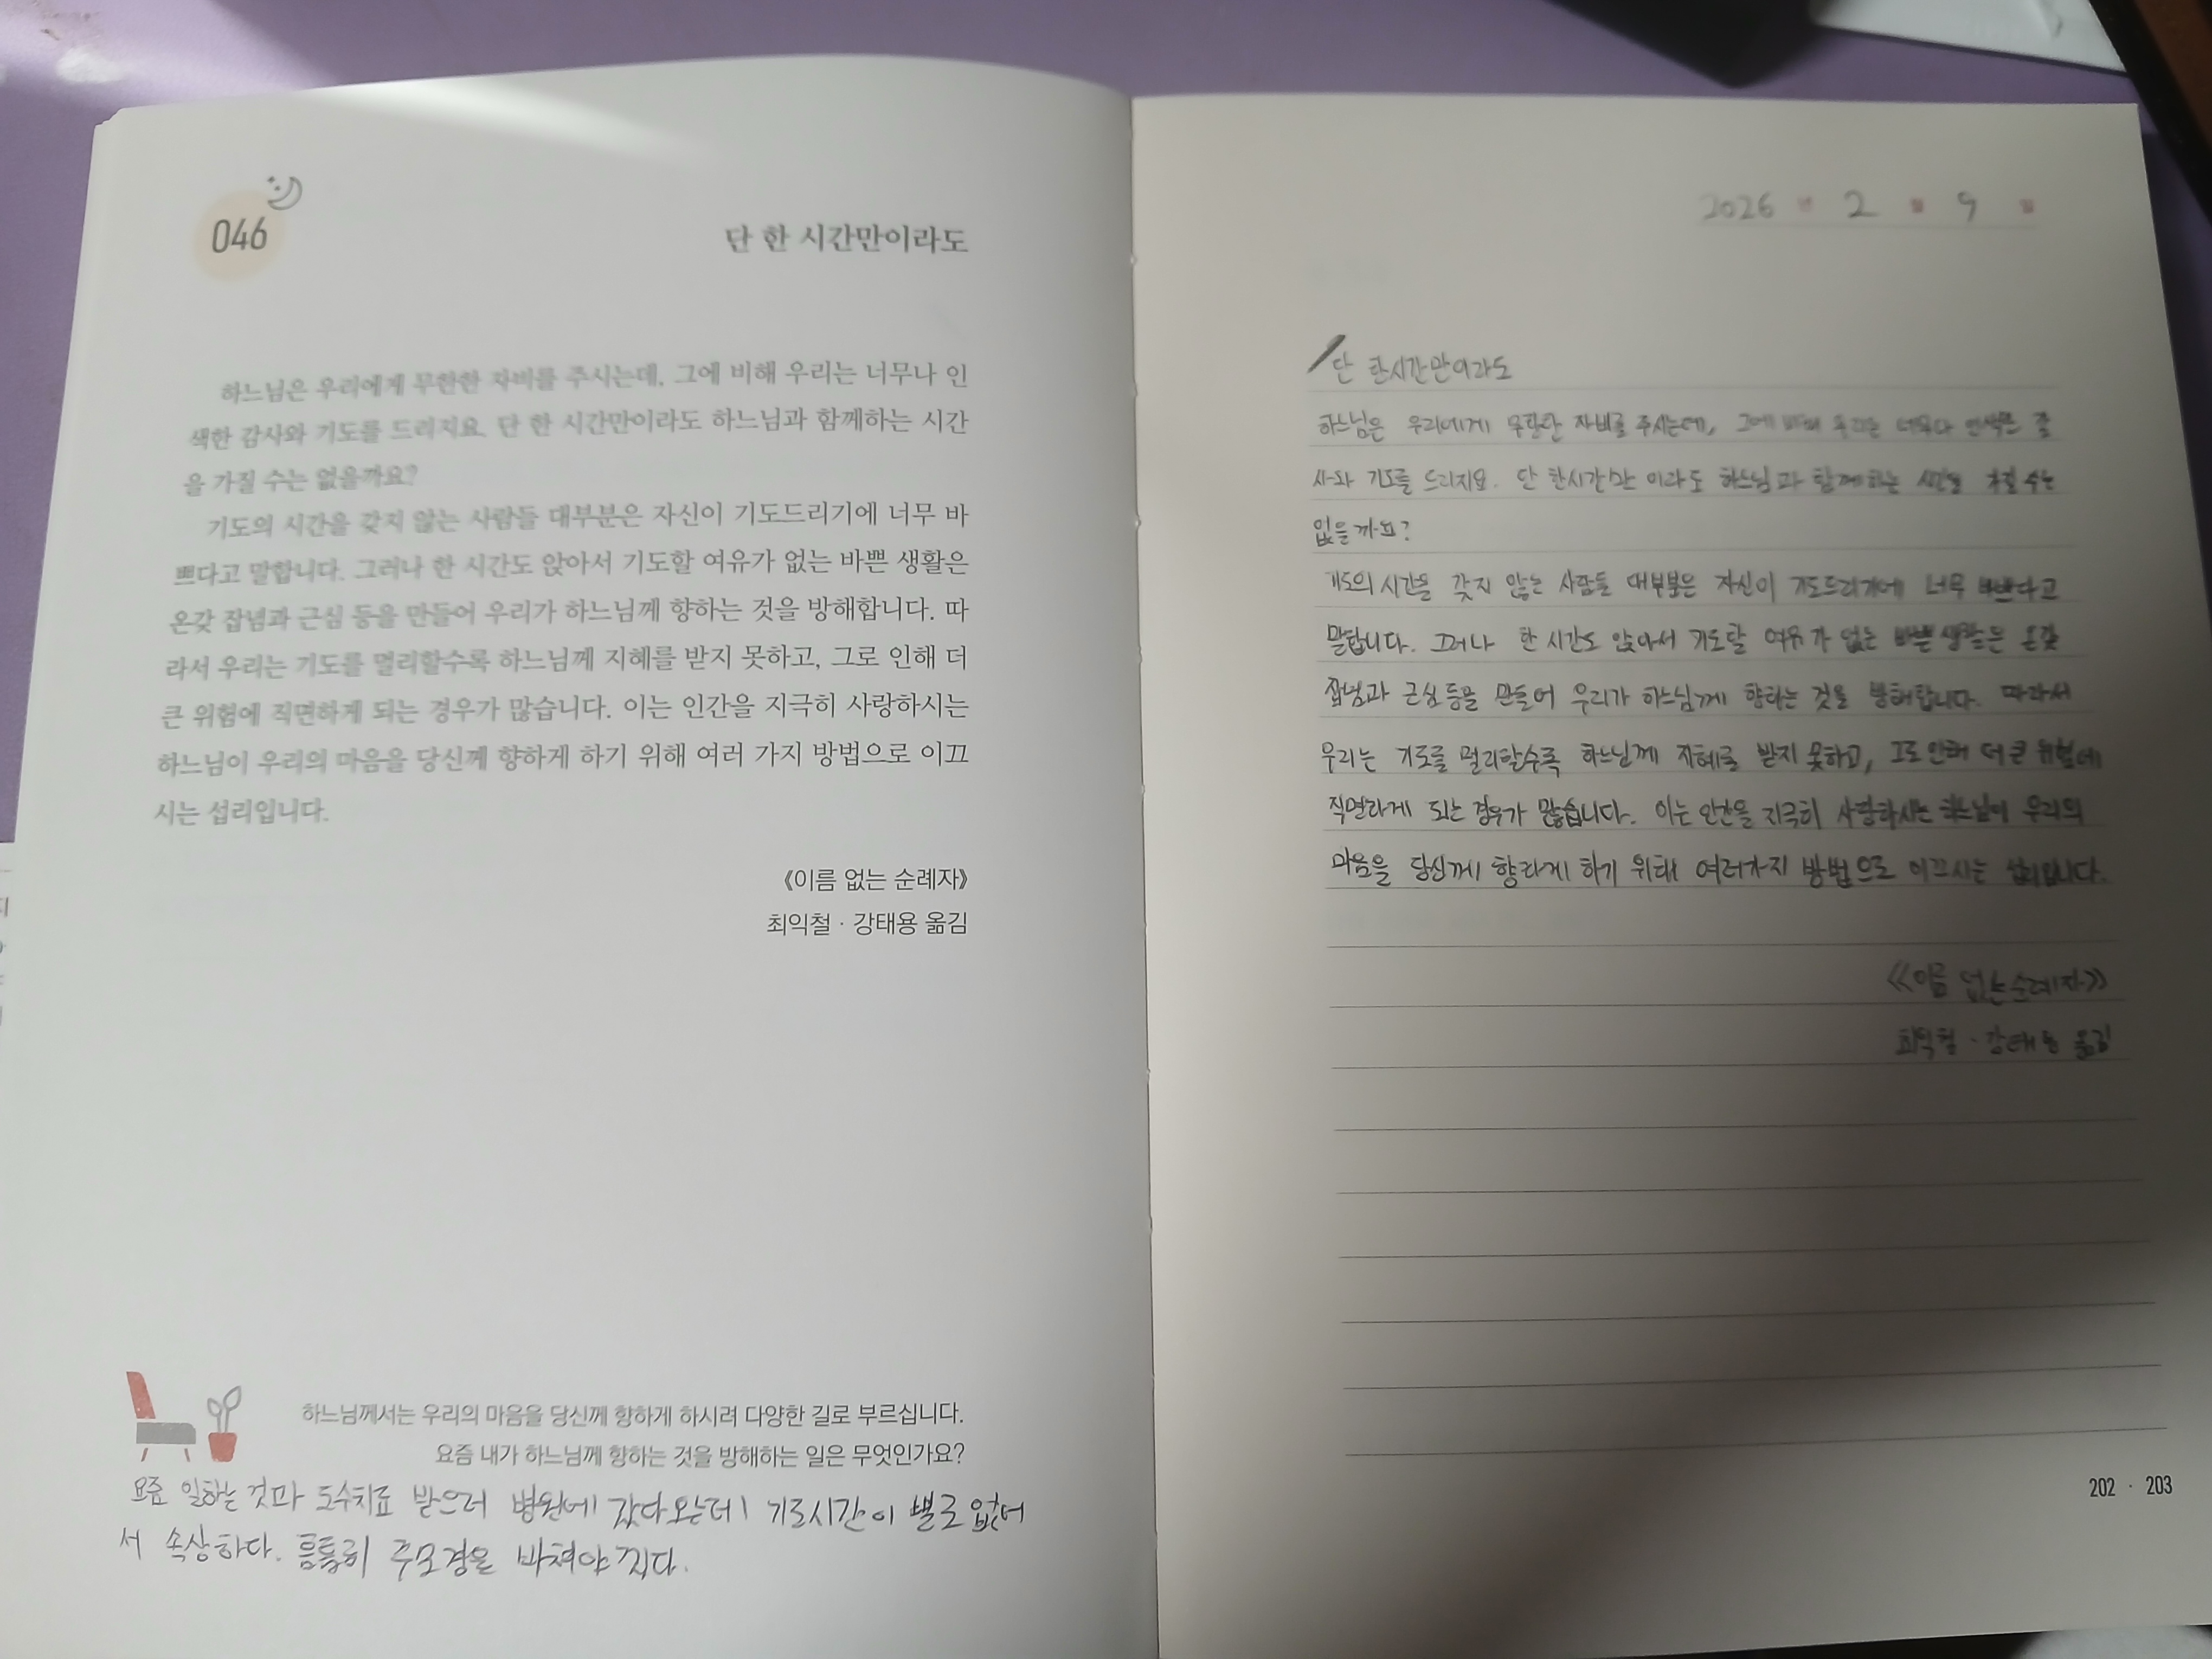 046
단 한 시간만이라도
하느님은 우리에게 무한한 자비를 주시는데, 그에 비해 우리는 너무나 인
색한 감사와 기도를 드리지요. 단 한 시간만이라도 하느님과 함께하는 시간
을 가질 수는 없을까요?
기도의 시간을 갖지 않는 사람들 대부분은 자신이 기도드리기에 너무 바
쁘다고 말합니다. 그러나 한 시간도 앉아서 기도할 여유가 없는 바쁜 생활은
온갖 잡념과 근심 등을 만들어 우리가 하느님께 향하는 것을 방해합니다. 따
라서 우리는 기도를 멀리할수록 하느님께 지혜를 받지 못하고, 그로 인해 더
큰 위험에 직면하게 되는 경우가 많습니다. 이는 인간을 지극히 사랑하시는
하느님이 우리의 마음을 당신께 향하게 하기 위해 여러 가지 방법으로 이끄
시는 섭리입니다.
《이름 없는 순례자》
최익철 · 강태용 옮김
하느님께서는 우리의 마음을 당신께 향하게 하시려 다양한 길로 부르십니다.
요즘 내가 하느님께 향하는 것을 방해하는 일은 무엇인가요?
요즘 일하는 것과 도수치료 받으러 병원에 갔다오는데 기도시간이 별로 없어
서 속상하다. 틈틈히 주모경을 바쳐야겠다.
2026 년 2 월 9 일
단 한시간만이라도
하느님은 우리에게 무한한 자비를 주시는데, 그에 비해 우리는 너무나 인색한 감
사와 기도를 드리지요. 단 한시간만 이라도 하느님과 함께하는 시간을 가질 수는
없을까요?
기도의 시간을 갖지 않는 사람들 대부분은 자신이 기도드리기에 너무 바쁘다고
말합니다. 그러나 한 시간도 앉아서 기도할 여유가 없는 바쁜 생활은 온갖
잡념과 근심 등을 만들어 우리가 하느님께 향하는 것을 방해합니다. 따라서
우리는 기도를 멀리할수록 하느님께 지혜를 받지 못하고, 그로 인해 더 큰 위험에
직면하게 되는 경우가 많습니다. 이는 인간을 지극히 사랑하시는 하느님이 우리의
마음을 당신께 향하게 하기 위해 여러가지 방법으로 이끄시는 섭리입니다.
《이름 없는 순례자》
최익철 · 강태용 옮김
202 · 203